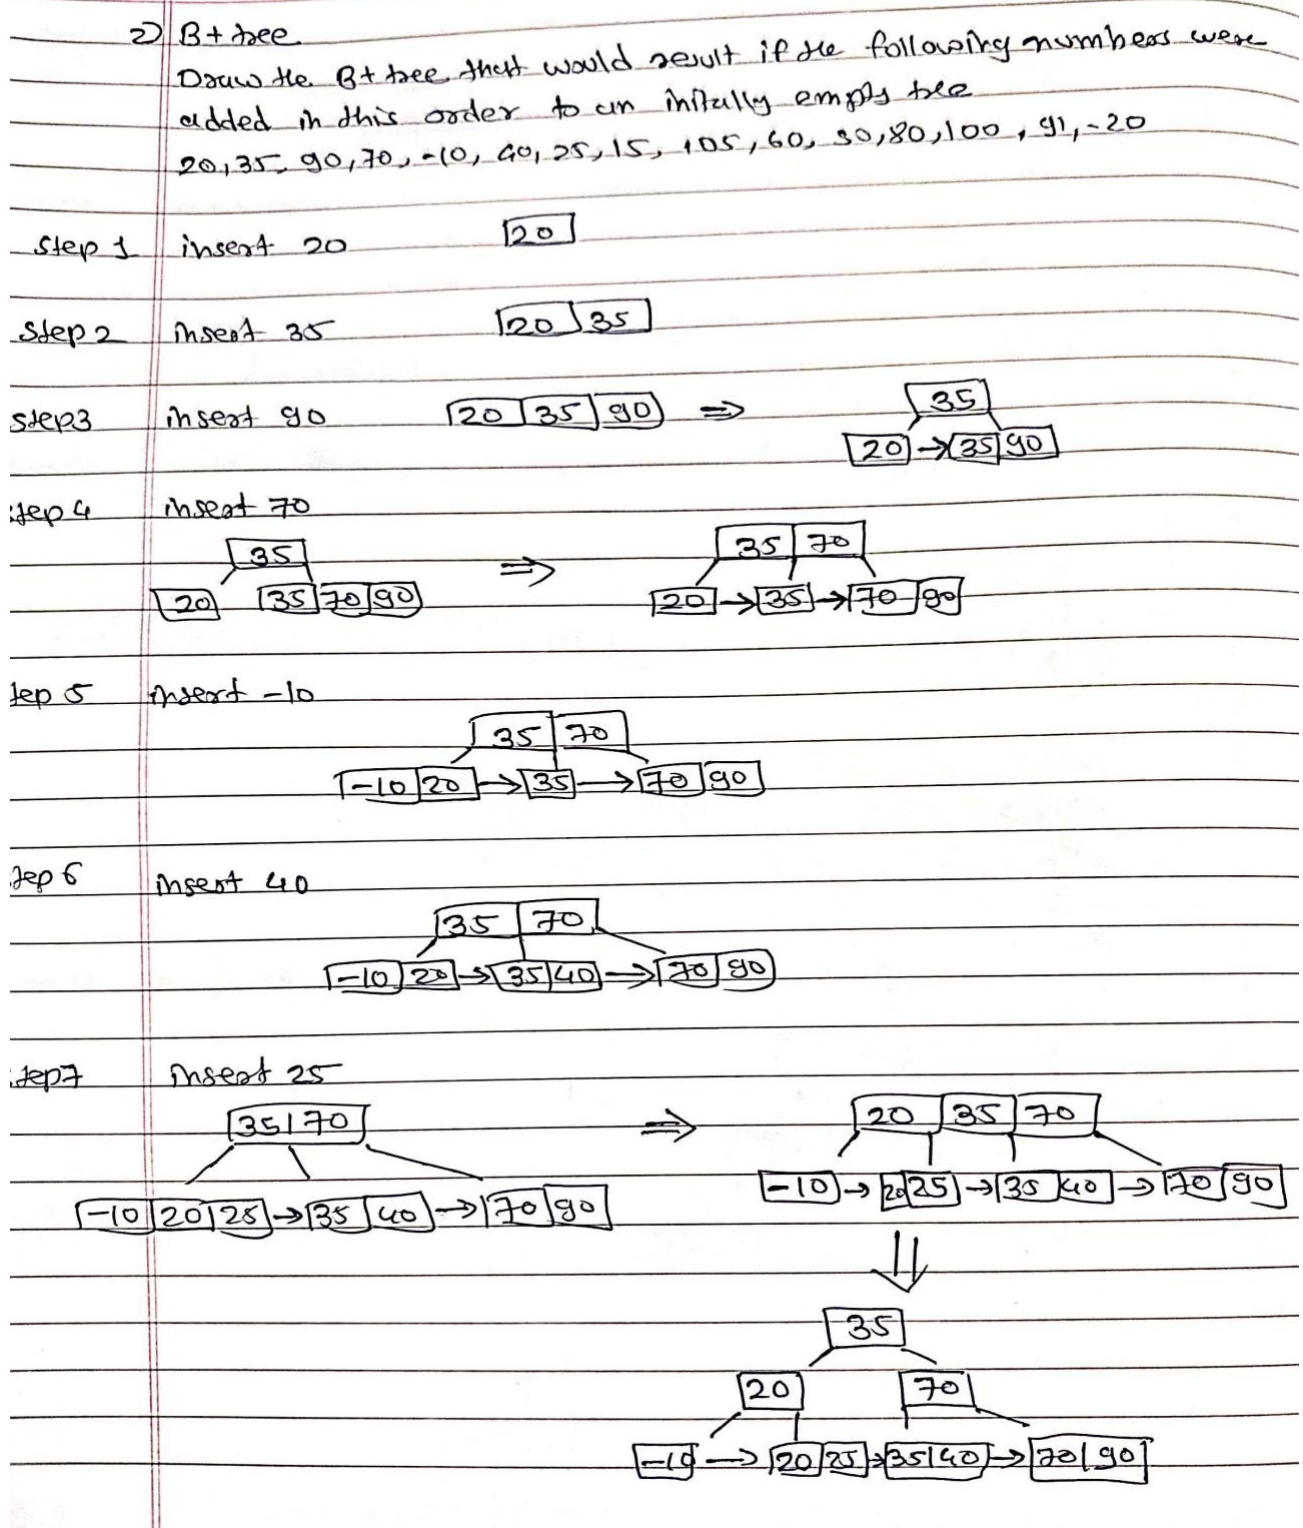 2) B+ tree
Draw the B+ tree that would result if the following numbers were
added in this order to an initally empty tree
20, 35, 90, 70, -10, 40, 25, 15, 105, 60, 30, 80, 100, 91, -20
Step 1 insert 20 20
Step 2 insert 35 20 35
Step3 insert 90 20 35 90 ⇒ 35
20 → 35 90
tep 4 insert 70
35 ⇒ 35 70
20 35 70 90 20 → 35 → 70 90
tep 5 insert -10
35 70
-10 20 → 35 → 70 90
tep 6 insert 40
35 70
-10 20 → 35 40 → 70 90
tep7 insert 25
35 70 ⇒ 20 35 70
-10 20 25 → 35 40 → 70 90 -10 → 20 25 → 35 40 → 70 90
⇓
35
20 70
-10 → 20 25 → 35 40 → 70 90